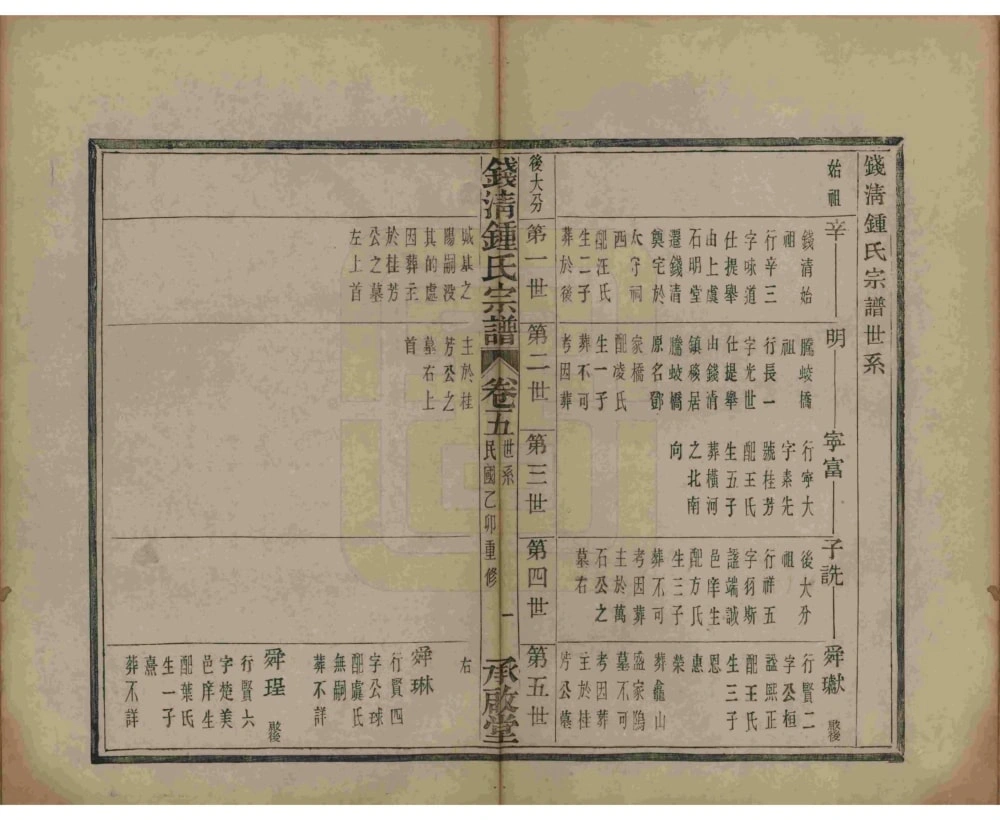 錢淸鍾氏宗譜世系
始祖
辛一
錢清始
祖
行辛三
字味道
仕提舉
由上虞
石明堂
遷錢清
奠宅於
太守祠
西
配汪氏
生二子
葬於後
明
騰蛟橋
祖
行長一
字光世
仕提舉
由錢清
鎮後居
騰蛟橋
原名鄧
家橋
配凌氏
生一子
葬不可
考因葬
寧富
行寧大
字素先
號桂芳
配王氏
生五子
葬橫河
之北南
向
子詵
後大分
祖
行祥五
字羽斯
諡端誠
邑庠生
配方氏
生三子
葬不可
考因葬
主於萬
石公之
墓右
舜瓛
行賢二
字公桓
諡熙正
配王氏
生三子
恩
惠
榮
葬龕山
盛家隖
墓不可
考因葬
主於桂
芳公墓
殿後
後大分
第一世
第二世
第三世
第四世
第五世
錢淸鍾氏宗譜
卷五
世系
民國乙卯重修
一
承啟堂
城基之
陽嗣没
其的處
因葬主
於桂芳
公之墓
左上首
主於桂
芳公之
墓右上
首
右
舜琳
行賢四
字公球
配虞氏
無嗣
葬不詳
舜珵
殿後
行賢六
字楚美
邑庠生
配葉氏
生一子
熹
葬不詳